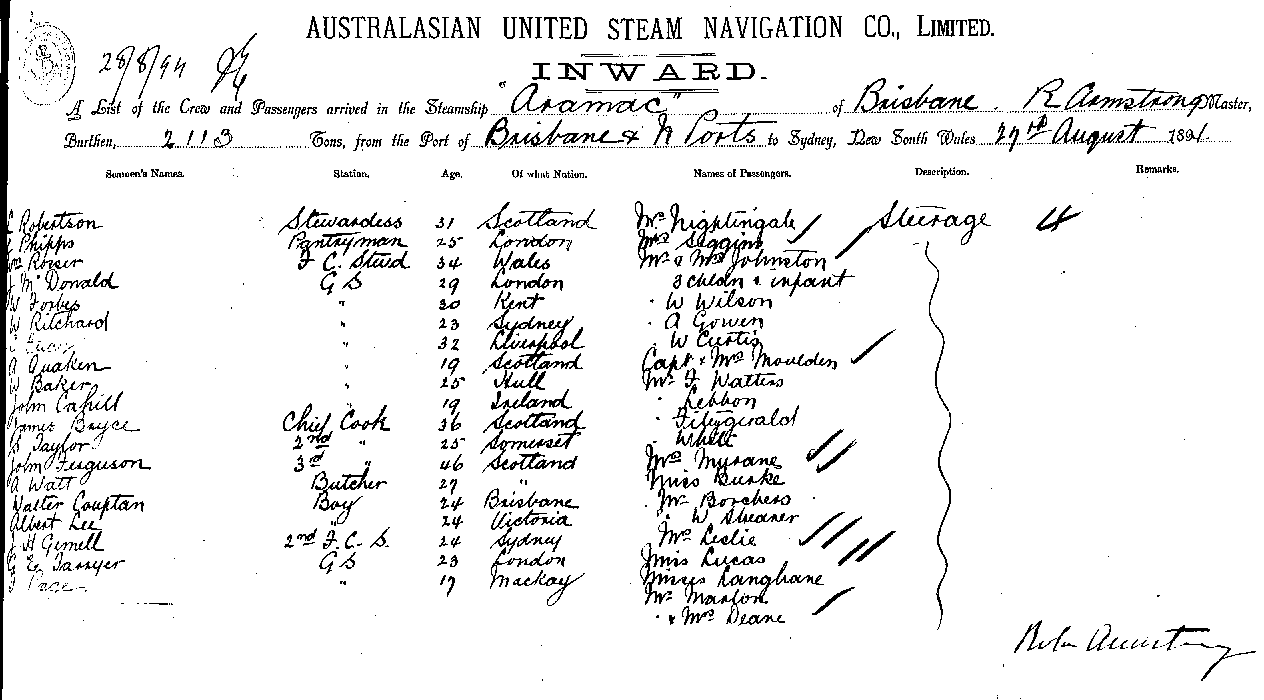 AUSTRALASIAN UNITED STEAM NAVIGATION CO., LIMITED.
28/8/94
INWARD.
A List of the Crew and Passengers arrived in the Steamship "Aramac" of Brisbane. R Armstrong Master,
Burthen, 2113 Tons, from the Port of Brisbane & N Ports to Sydney, New South Wales 27th August 1891
Seamen's Names. Station. Age. Of what Nation. Names of Passengers. Description. Remarks.
Robertson Stewardess 31 Scotland Mrs Nightingale Steerage 4
Phipps Pantryman 25 London Mrs Siggins
Rosser F. C. Stewd 34 Wales Mr & Mrs Johnston
McDonald G S 29 London 3 childn & infant
W Forbes " 30 Kent " W Wilson
W Ritchard " 23 Sydney " A Gowen
" 32 Liverpool " W Curtis
A Quaken " 19 Scotland Capt & Mrs Moulden
W Baker " 25 Hull Mr F Watters
John Cahill " 19 Ireland " Lebbon
James Bryce Chief Cook 36 Scotland " Fitzgerald
Taylor 2nd " 25 Somerset
John Ferguson 3rd " 46 Scotland Mrs
A Watt Butcher 27 " Miss Burke
Walter Couptan Boy 24 Brisbane Mr Borchers
Albert Lee " 24 Victoria " W
H Gemell 2nd F. C. S. 24 Sydney Mrs Leslie
G E G S 23 London Miss Lucas
Page " 17 Mackay Misses Langhane
Mr Marlon
" & Mrs Deane